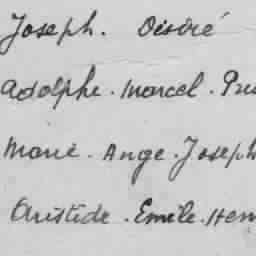 Joseph. Désiré
Adolphe. Marcel.
Marie. Ange. Joseph
Aristide. Emile. Hen